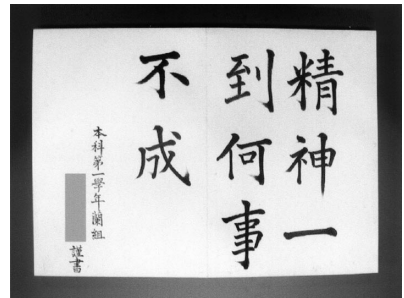 精神一
到何事
不成
本科第一學年蘭組
謹書